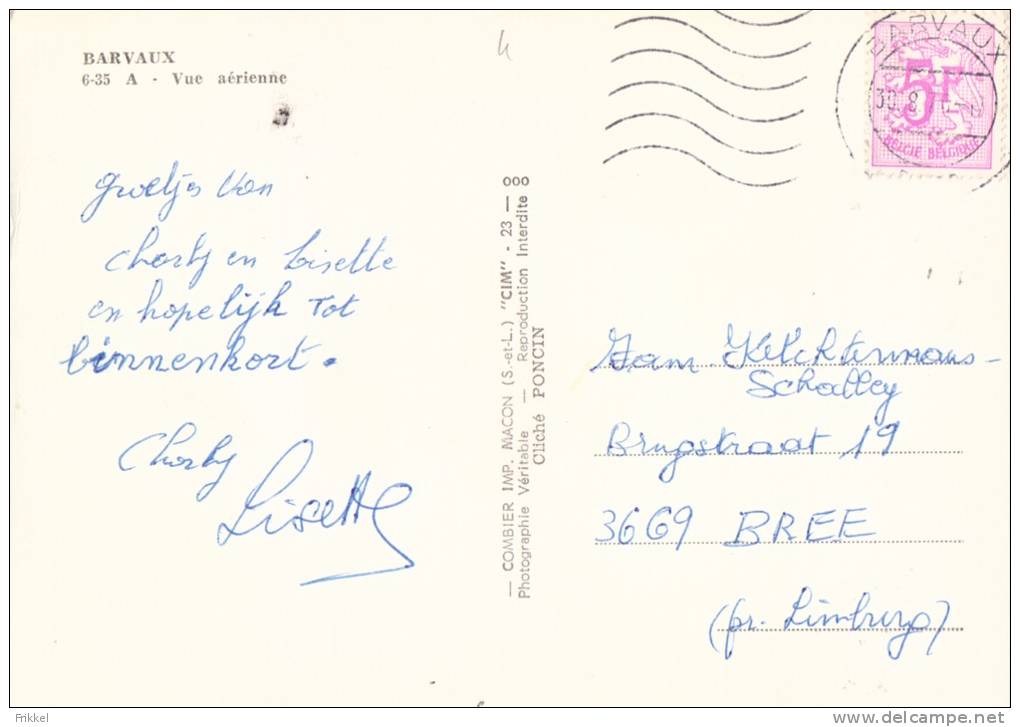 BARVAUX
6-35 A - Vue aérienne
BARVAUX
30. 8
5F
BELGIE BELGIQUE
groetjes van
Charly en Lisette
en hopelijk Tot
binnenkort.
Charly
Lisette
— COMBIER IMP. MACON (S.-et-L.) "CIM" - 23 — 000
Photographie Véritable — Reproduction Interdite
Cliché PONCIN
Fam. Kelchtermans-
Schalley
Brugstraat 19
3669 BREE
(pr. Limburg)
Frikkel
www.delcampe.net